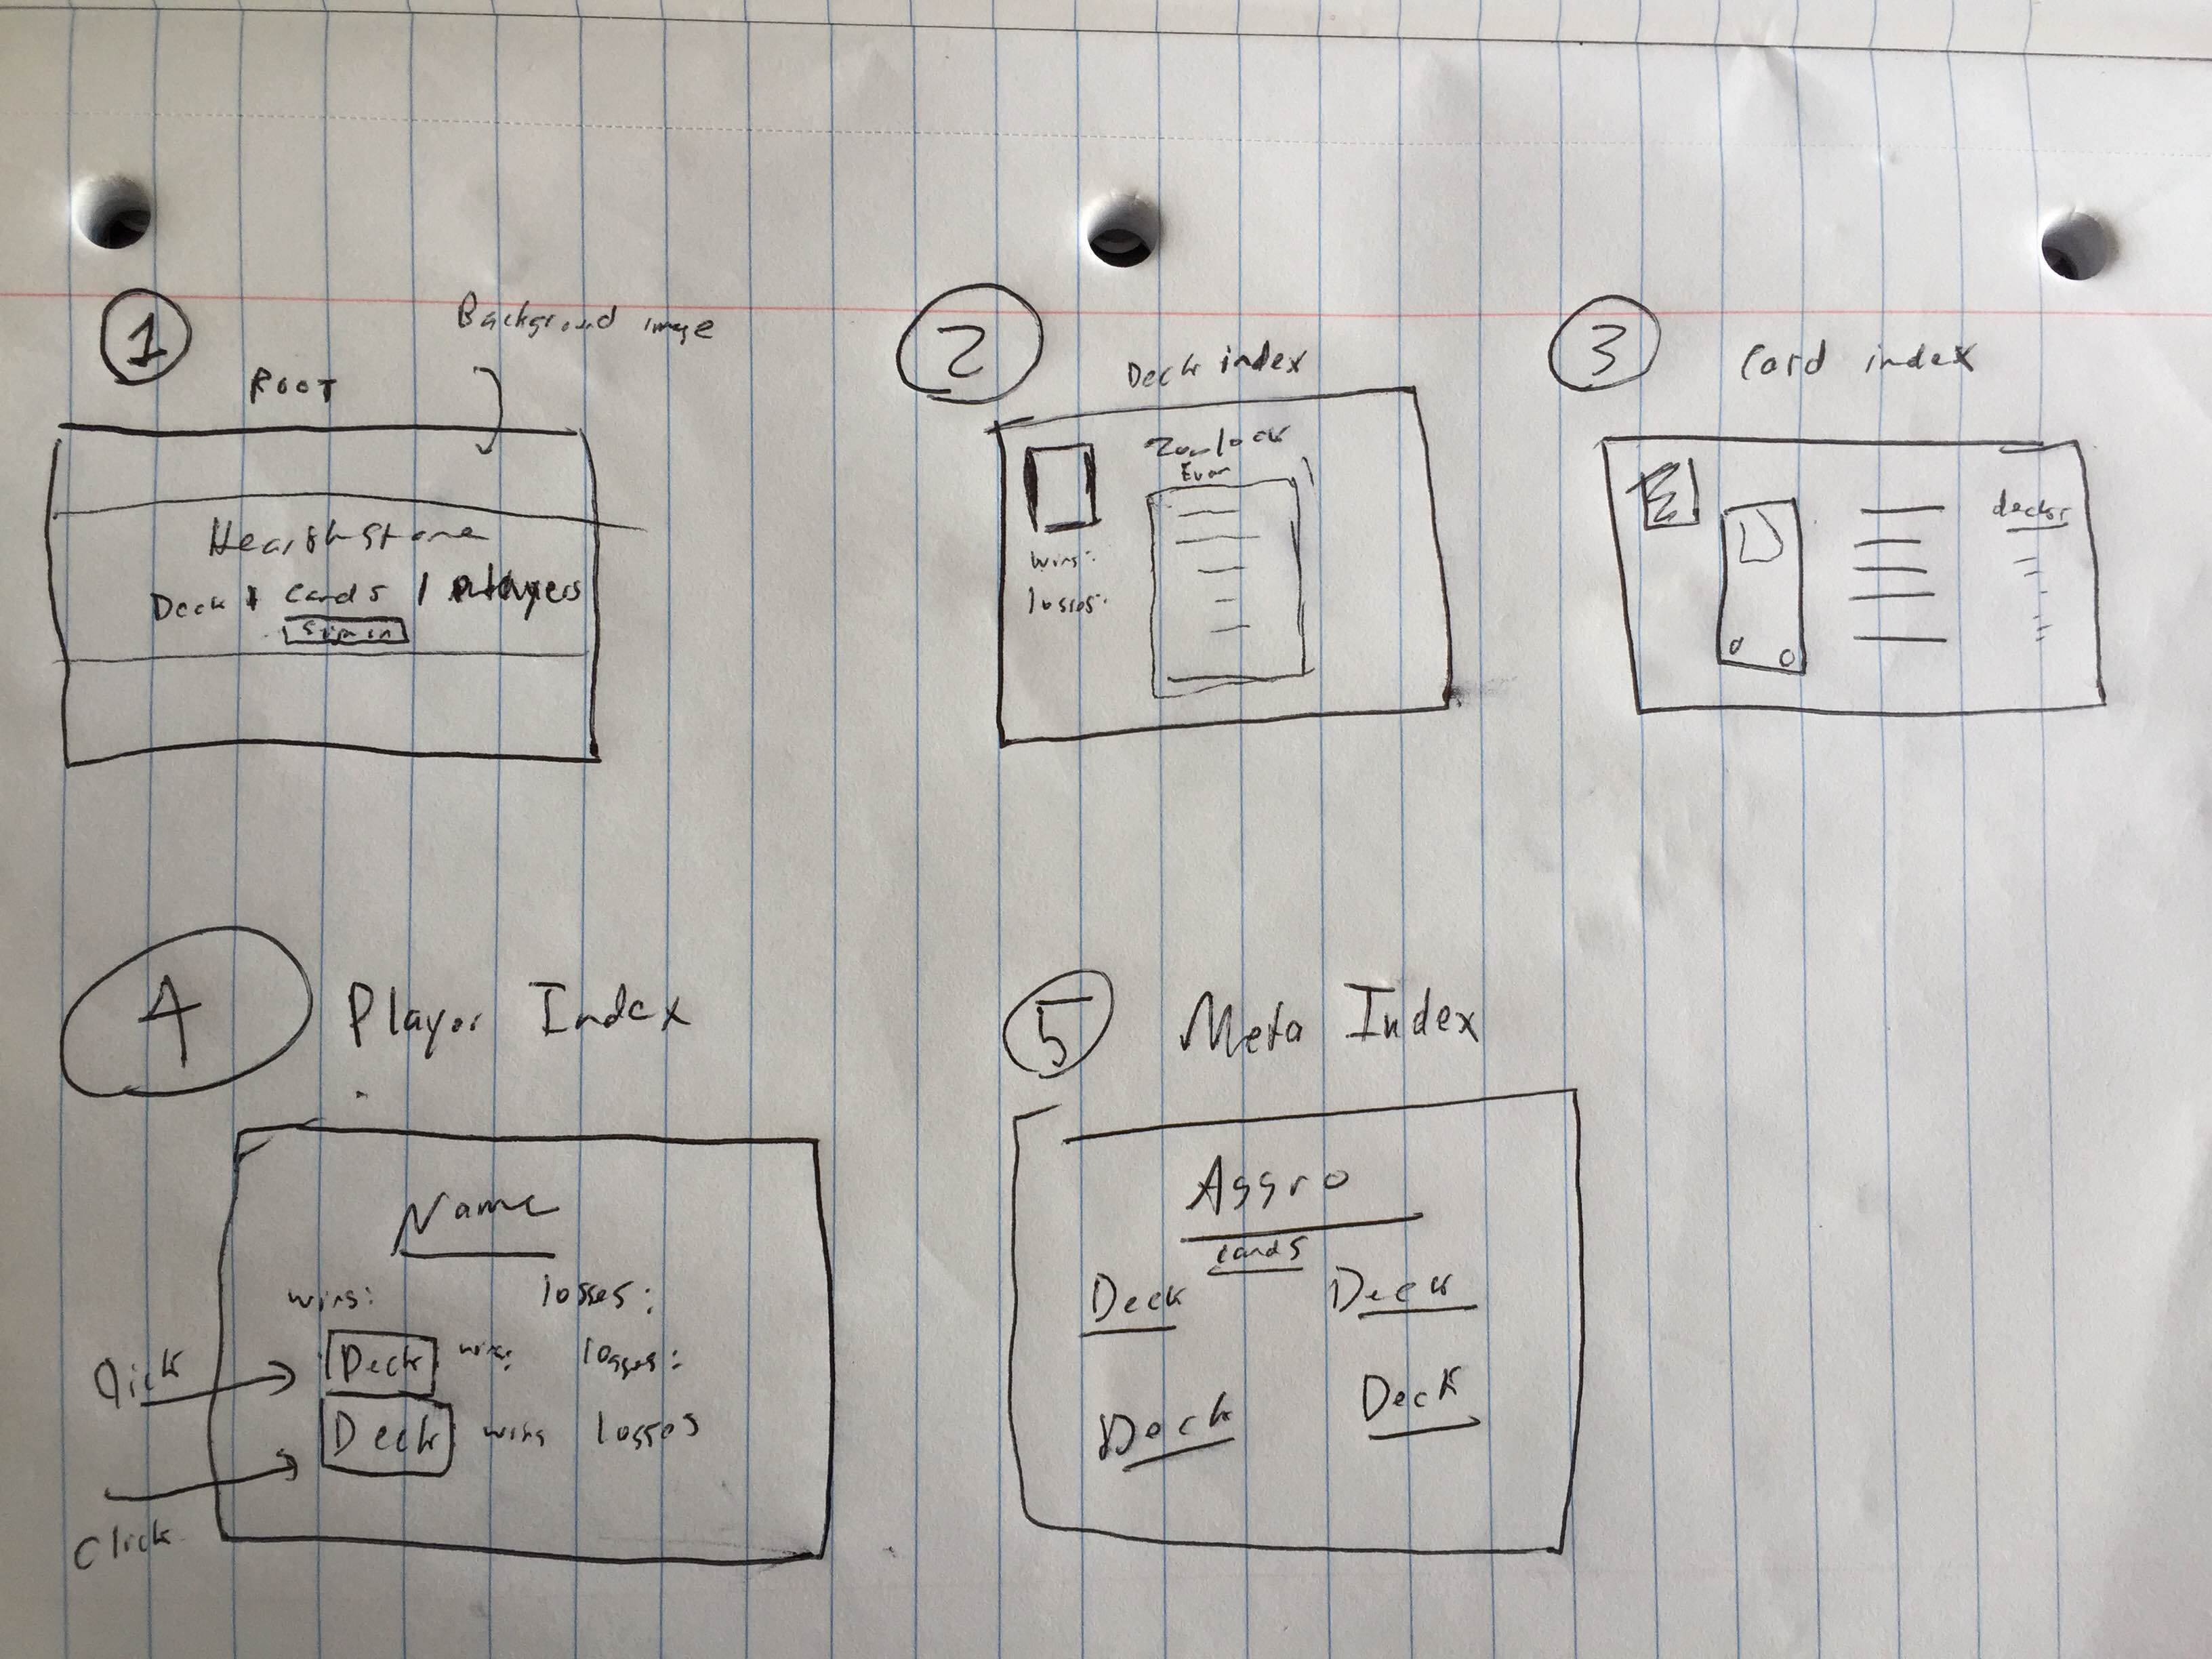 1
ROOT
Background image
Hearthstone
Deck | cards | players
Sign in
2
Deck index
Zoolock
wins:
losses:
3
Card index
decks
4
Player Index
Name
wins: losses:
Click
Deck wins: losses:
Click
Deck wins losses
5
Meta Index
Aggro
cards
Deck Deck
Deck Deck